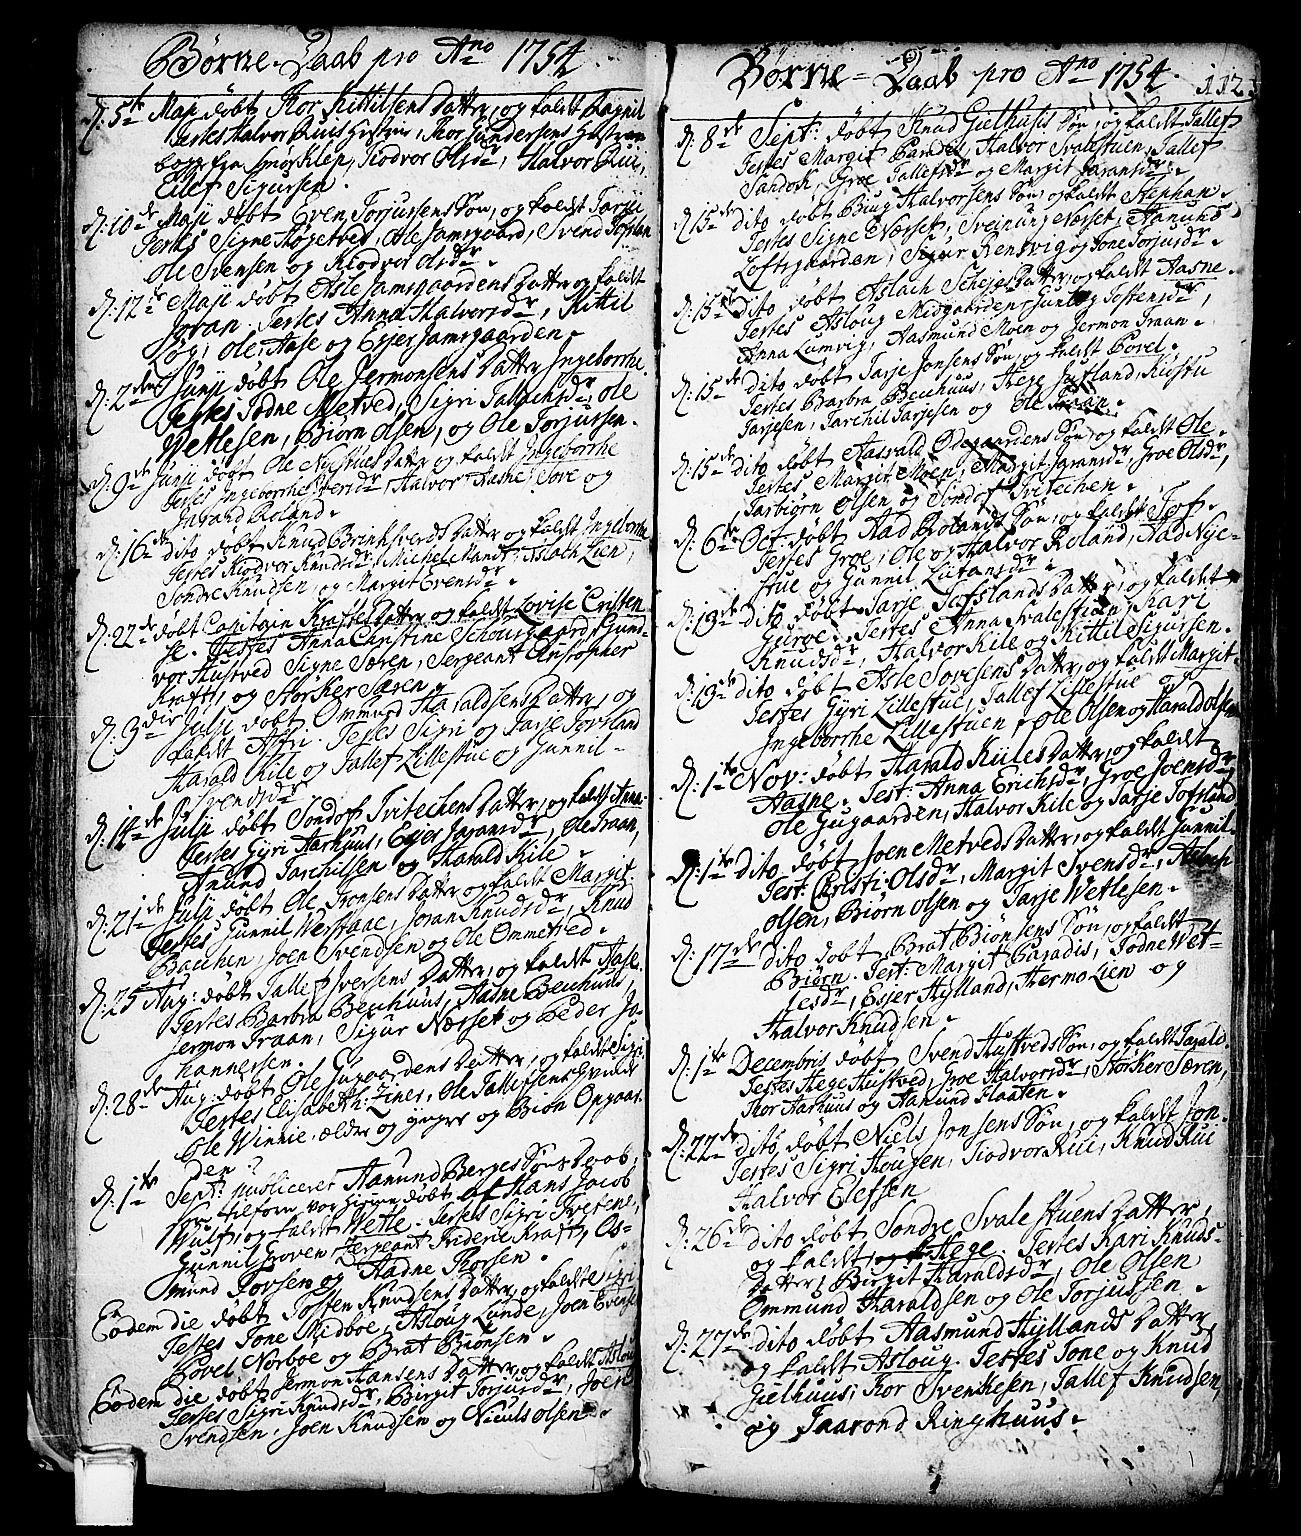 Børne-Daab pro Ano 1754
d: 5te Maji døbt Thor Kittilsens Datter, og kaldt Ragnil
Testes Halvor Ruis Hustrue, Thor Gundersens Hustrue
fra Smørklep, Tiodvor Olsdr, Halvor Rui,
Eilef Sigursen.
d: 10de Maji døbt Even Torjussens Søn, og kaldt Tarje
Testes Signe Høgetved, Ole Jamsgaard, Svend
Ole Svensen og Kiodvor Olsdr.
d: 12te Maji døbt Asle Jamsgaardens Datter og kaldt
Joran. Testes Anna Halvorsdr, Kittil
Løg, Ole, Aase og Ejer Jamsgaarden.
d: 2den Junji døbt Ole Jermonsens Datter Ingeborrhe.
Testes Todne Metved, Sigri Tallachsdr, Ole
Wetlesen, Biørn Olsen, og Ole Torjussen.
d: 9de Junji døbt Ole Datter og kaldt Ingeborrhe
Testes Ingeborrhe Iversdr, Halvor, Aasne, Tove og
Jarand Roland.
d: 16de dito døbt Knud Brinksverds Datter og kaldt Ingeborrhe
Testes Kiodvor Knudsdr, Michel Mandt, Aslach Lien,
Sondre Knudsen, og Margit Evensdr.
d: 22de døbt Capitain Krafts Datter og kaldt Lovise Cristen-
se. Testes Anna Catrine Schougaard, Gun-
vor Hustved, Signe Særen, Sergeant Christopher
Kraft, og Størker Særen.
d: 3die Julji døbt Ommund Haraldsens Datter, og
kaldt Astri. Testes Sigri og Tarje Tofsland
Harald Kile og Tallef Lillestue og Gunnil
Svendsdr.
d: 14de Julji døbt Sondof Tvitechens Datter, og kaldt Anna
Testes Gyri Aarhuus, Ejer Jaransdr, Ole Traan,
Amund Tarchilsen og Harald Kile.
d: 21de Julji døbt Ole Tronsens Datter og kaldt Margit
Testes Gunnil Werstaae, Joran Knudsdr, Knud
Bacchen, Joen Svendsen og Ole Ommetved.
d: 25 Aug: døbt Tallef Iversens Datter, og kaldt Aase.
Testes Barbra Beuhuus, Aasne Beuhuus,
Jermon Traan, Sigur Nærset og Peder Jo-
hannessen.
d: 28de Aug: døbt Ole Gugaardens Datter, og kaldt Sigri
Testes Elisabeth Zines, Ole Tallefsens Qvinde
Ole Winnie, ælder og yngre og Biøn Opgaar-
den.
d: 1te Sept: publiceret Aamund Berges Søns Daab,
som tilforn var hjemmedøbt af Hans Jacob
Wulf, og kaldt Wetle. Testes Sigri Tvetene,
Gunnil Groven, Sergeant Frideric Kraft, Os-
mund Torsen og Aadne Thorsen.
Eodem die døbt Toften Knudsens Datter, og kaldt Sigri
Testes Tone Midboe, Asloug Lunde, Joen Evensen
Povel Norboe og Brat Biønsen.
Eodem die døbt Jermon Hansens Datter, og kaldt Asloug
Testes Sigri Knudsdr, Birgit Torjusdr, Joen
Svendsen, Joen Knudsen og Niculs Olsen.
Børne-Daab pro Ano 1754. 112
d: 8de Sept: døbt Knud Gielhuses Søn, og kaldt Tallef
Testes Margit Paradis, Halvor Svalestuen, Tallef
Sandok, Groe Tallefsdr og Margit Jaransdr.
d: 15de dito døbt Biug Halvorsens Søn, og kaldt Stephan.
Testes Signe Nærset, Sveinung Nærset, Aanund
Loftsgaarden, Sigur Rensvig og Tone Torjusdr.
d: 15de dito døbt Aslach Schejes Datter, og kaldt Aasne.
Testes Asloug Midgaarden, Gunlog Toftensdr,
Anna Lumvig, Aasmund Moen og Jermon Traan.
d: 15de dito døbt Tarje Jonsens Søn, og kaldt Povel.
Testes Barbra Beuhuus, Hege Jutland, Kiustu
Tarjesen, Tarchil Tarjesen og Ole Traan.
d: 15de dito døbt Aasvald Ødegaardens Søn, og kaldt Ole.
Testes Margit Moen, Margit Jaransdr, Groe Olsdr,
Tarbiørn Olsen og Sondof Tvitechen.
d: 6te Oct: døbt Aad Rolands Søn, og kaldt Tof.
Testes Groe, Ole og Halvor Roland, Aad Nye-
stue og Gunnil Liutansdr.
d: 19de dito døbt Tarje Tofslands Datter, og kaldt
Guroe. Testes Anna Svalestuen, Kari
Knudsdr, Halvor Kile og Kittil Sigursen.
d: 19de dito døbt Asle Tovesens Datter, og kaldt Margit.
Testes Gyri Lillestue, Tallef Lillestue og
Ingeborrhe Lillestuen, Ole Olsen og Harald Olsen
d: 1te Nov: døbt Harald Kiiles Datter, og kaldt
Aasne. Test: Anna Erichsdr, Groe Joensdr,
Ole Gugaarden, Halvor Kile og Tarje Tofsland
d: 1te dito døbt Joen Metveds Datter, og kaldt Gunnil.
Test: Christi Olsdr, Margit Svensdr, Aslach
Olsen, Biørn Olsen og Tarje Wetlesen.
d: 17de dito døbt Brat Biønsens Søn, og kaldt
Biørn. Test: Margit Paradis, Todne Wet-
lesdr, Ejer Hylland, Hermo Lien og
Halvor Knudsen.
d: 1te Decembris døbt Svend Hustveds Søn, og kaldt
Testes Hege Hustved, Groe Halvorsdr, Størker Særen,
Thor Aarhuus og Aamund Flaaten.
d: 22de dito, døbt Niels Jonsens Søn, og kaldt Jon.
Testes Sigri Hougen, Tiodvor Rui, Knud Rui
Halvor Elefsen
d: 26de dito døbt Sondre Svalestuens Datter,
og kaldt Hege. Testes Kari Knuds-
Datter, Birgit Haraldsdr, Ole Olsen
Ommund Haraldsen og Ole Torjussen.
d: 27de dito døbt Aasmund Hyllands Datter
og kaldt Asloug. Testes Tone og Knud
Gielhuus, Thor Svenkesen, Tallef Knudsen,
og Taarond Ringhuus.